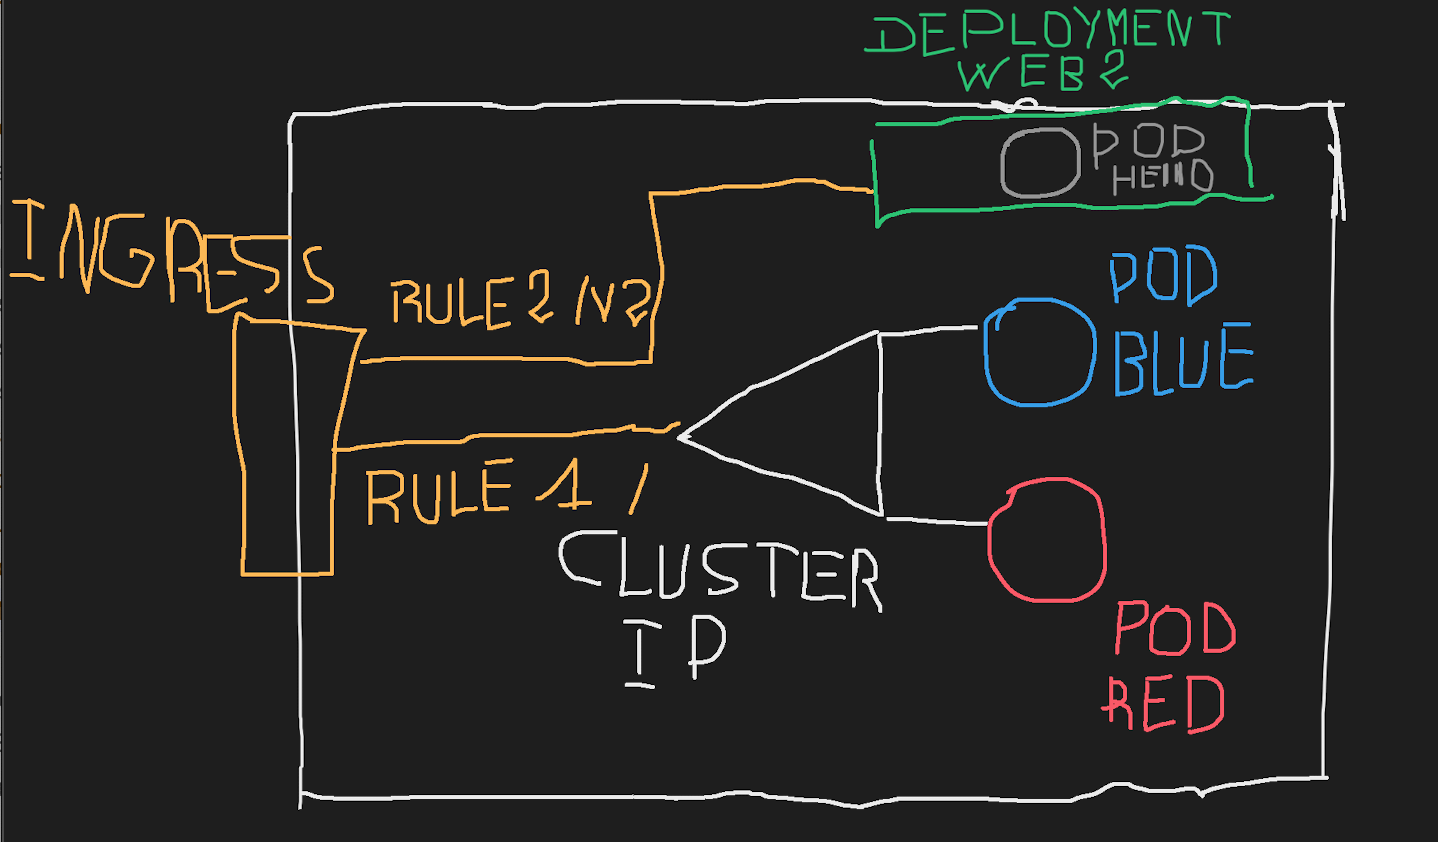 DEPLOYMENT
WEB2
POD
HELLO
INGRESS
RULE2 /V2
POD
BLUE
RULE 1 /
CLUSTER
IP
POD
RED